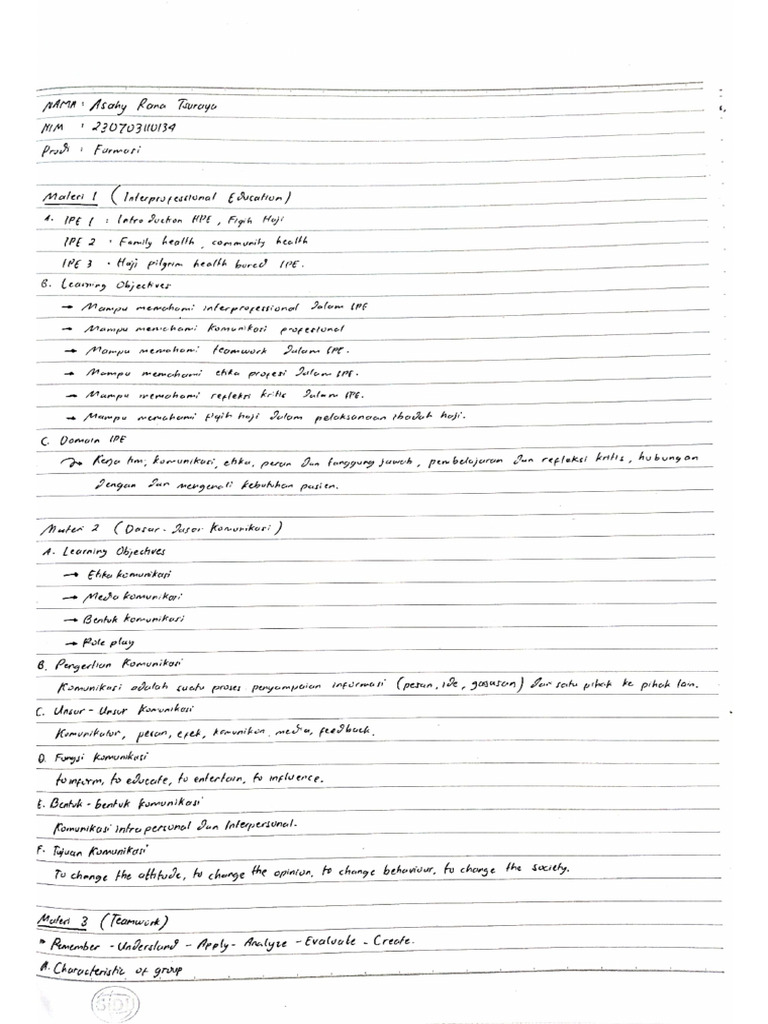 NAMA : Asahy Rana Tsuraya
NIM : 230703110134
Prodi : Farmasi
Materi 1 (Interprofessional Education)
A. IPE 1 : Introduction IPE, Fiqih Haji
IPE 2 : Family health, community health
IPE 3 : Haji pilgrim health bared IPE.
B. Learning Objectives
→ Mampu memahami interprofessional dalam IPE
→ Mampu memahami komunikasi profesional
→ Mampu memahami teamwork dalam IPE.
→ Mampu memahami etika profesi dalam IPE.
→ Mampu memahami refleksi kritis dalam IPE.
→ Mampu memahami fiqih haji dalam pelaksanaan ibadah haji.
C. Domain IPE
→ Kerja tim, komunikasi, etika, peran dan tanggung jawab, pembelajaran dan refleksi kritis, hubungan
dengan dan mengenali kebutuhan pasien.
Materi 2 (Dasar-dasar Komunikasi)
A. Learning Objectives
→ Etika komunikasi
→ Media komunikasi
→ Bentuk komunikasi
→ Role play
B. Pengertian Komunikasi
Komunikasi adalah suatu proses penyampaian informasi (pesan, ide, gagasan) dari satu pihak ke pihak lain.
C. Unsur-Unsur Komunikasi
Komunikator, pesan, efek, komunikan, media, feedback.
D. Fungsi Komunikasi
to inform, to educate, to entertain, to influence.
E. Bentuk-bentuk komunikasi
Komunikasi intrapersonal dan Interpersonal.
F. Tujuan Komunikasi
To change the attitude, to change the opinion, to change behaviour, to change the society.
Materi 3 (Teamwork)
* Remember - Understand - Apply - Analyze - Evaluate - Create.
A. Characteristic of group
SIDU